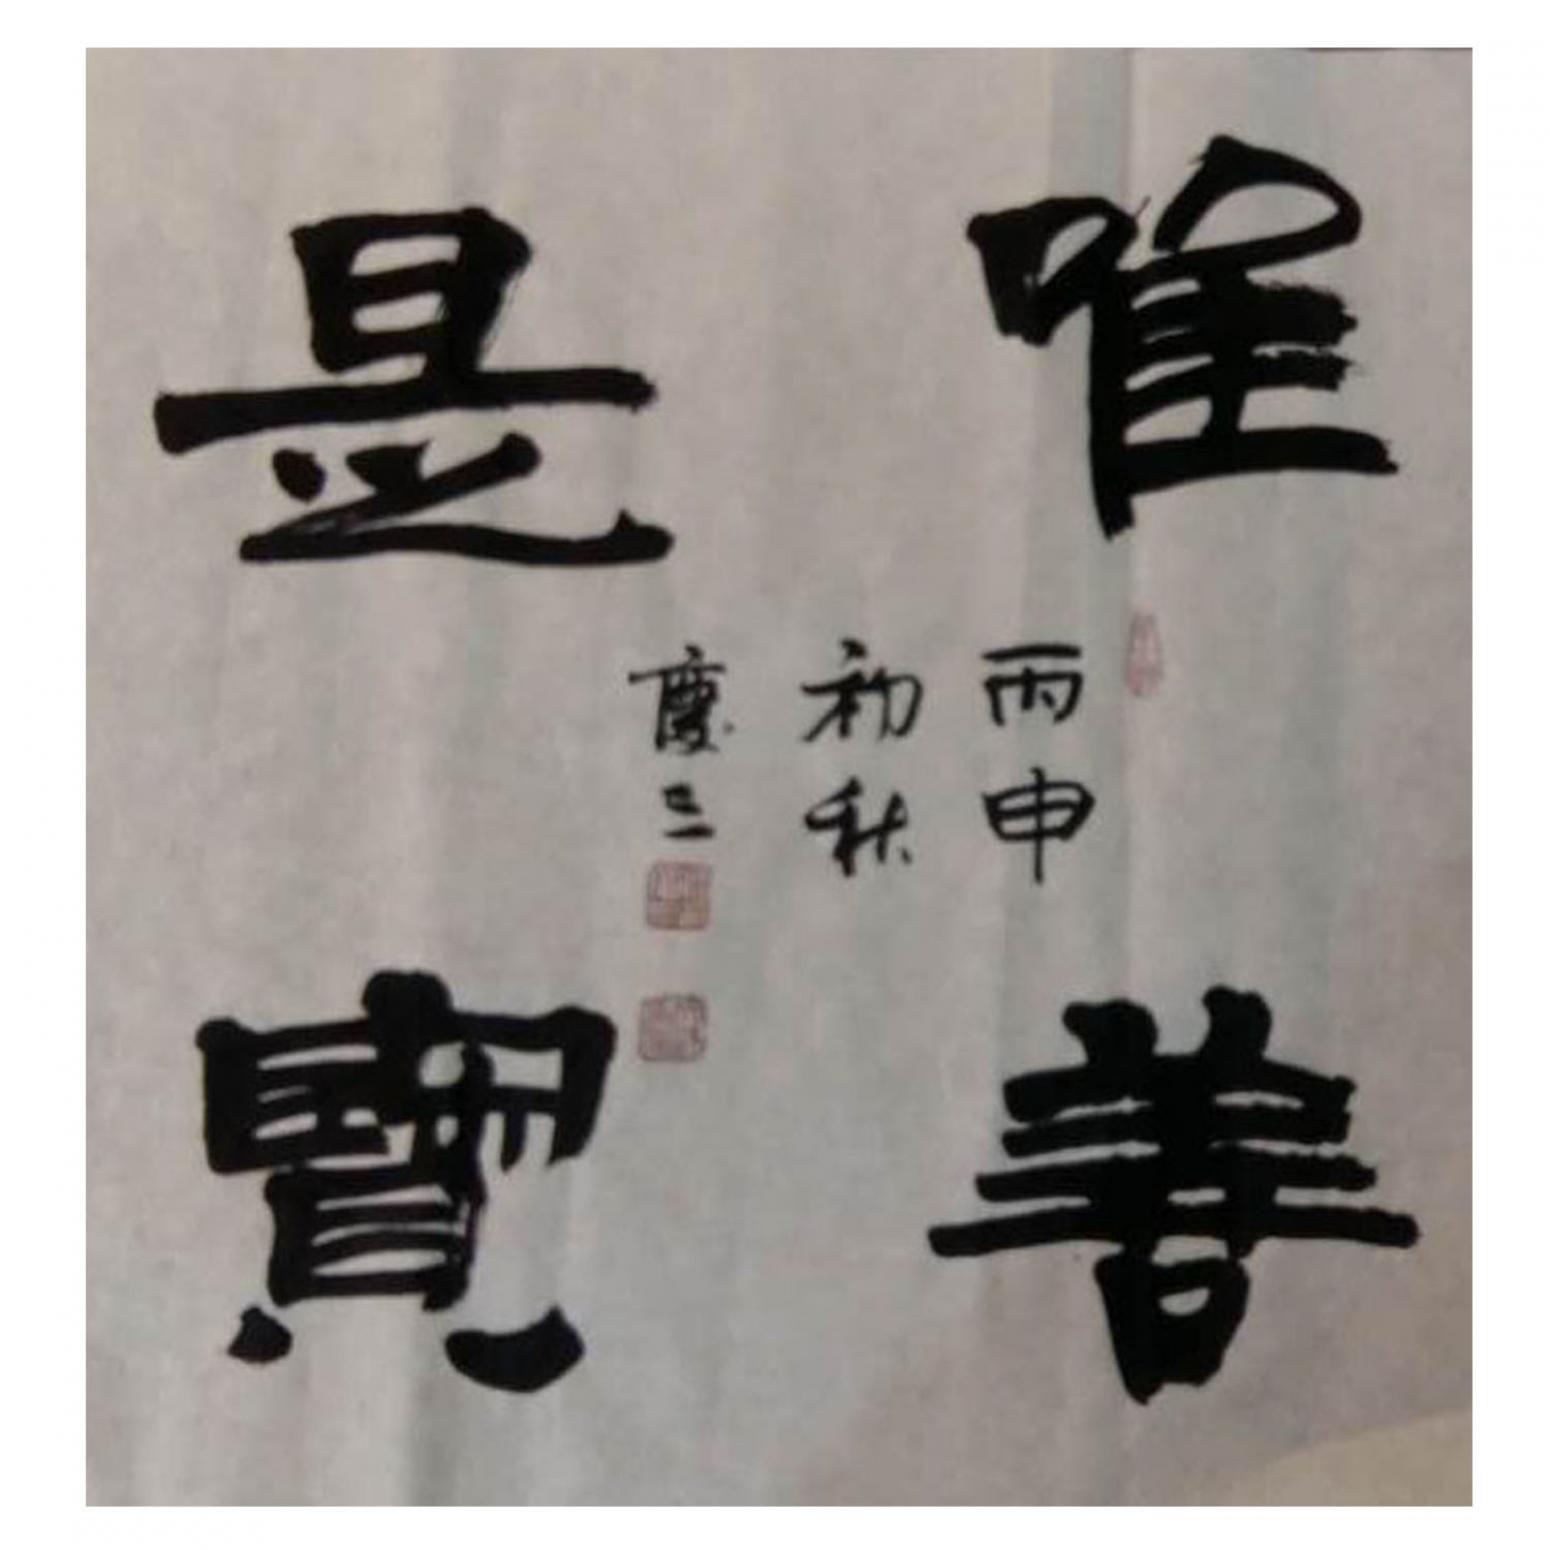 唯善
是寶
丙申
初秋
慶三